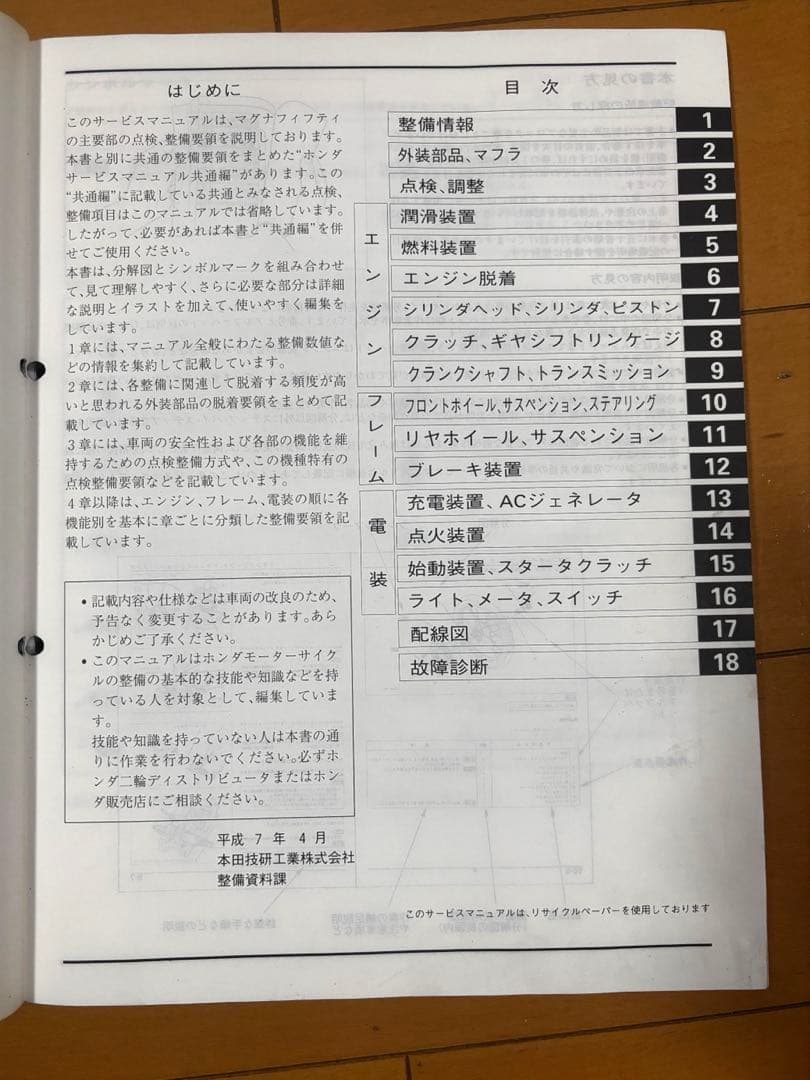 はじめに
このサービスマニュアルは、マグナフィフティ
の主要部の点検、整備要領を説明しております。
本書と別に共通の整備要領をまとめた“ホンダ
サービスマニュアル共通編”があります。この
“共通編”に記載している共通とみなされる点検、
整備項目はこのマニュアルでは省略しています。
したがって、必要があれば本書と“共通編”を併
せてご使用ください。
本書は、分解図とシンボルマークを組み合わせ
て、見て理解しやすく、さらに必要な部分は詳細
な説明とイラストを加えて、使いやすく編集を
しています。
1章には、マニュアル全般にわたる整備数値な
どの情報を集約して記載しています。
2章には、各整備に関連して脱着する頻度が高
いと思われる外装部品の脱着要領をまとめて記
載しています。
3章には、車両の安全性および各部の機能を維
持するための点検整備方式や、この機種特有の
点検整備要領などを記載しています。
4章以降は、エンジン、フレーム、電装の順に各
機能別を基本に章ごとに分類した整備要領を記
載しています。
•記載内容や仕様などは車両の改良のため、
予告なく変更することがあります。あら
かじめご了承ください。
•このマニュアルはホンダモーターサイク
ルの整備の基本的な技能や知識などを持
っている人を対象として、編集していま
す。
技能や知識を持っていない人は本書の通
りに作業を行わないでください。必ずホ
ンダ二輪ディストリビュータまたはホン
ダ販売店にご相談ください。
平成 7 年 4 月
本田技研工業株式会社
整備資料課
目 次
整備情報 1
外装部品、マフラ 2
点検、調整 3
エンジン
潤滑装置 4
燃料装置 5
エンジン脱着 6
シリンダヘッド、シリンダ、ピストン 7
クラッチ、ギヤシフトリンケージ 8
クランクシャフト、トランスミッション 9
フレーム
フロントホイール、サスペンション、ステアリング 10
リヤホイール、サスペンション 11
ブレーキ装置 12
電装
充電装置、ACジェネレータ 13
点火装置 14
始動装置、スタータクラッチ 15
ライト、メータ、スイッチ 16
配線図 17
故障診断 18
このサービスマニュアルは、リサイクルペーパーを使用しております